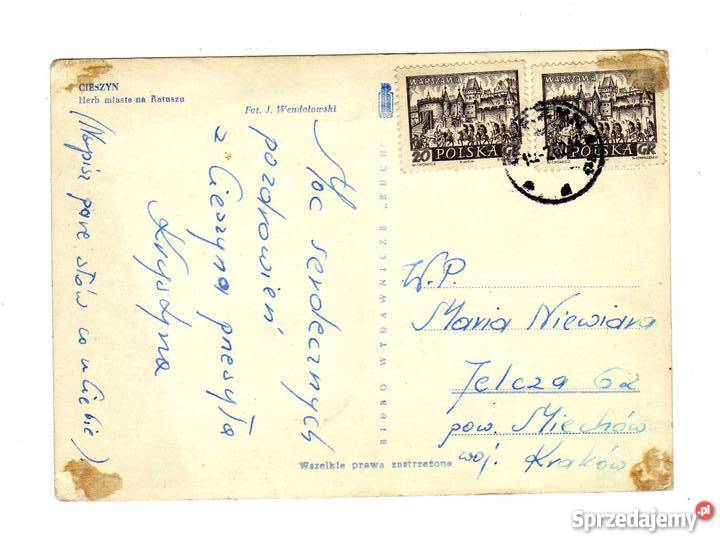 CIESZYN
Herb miasta na Ratuszu
Fot. J. Wendołowski
WARSZAWA
20 POLSKA GR
WARSZAWA
POLSKA GR
Moc serdecznych
pozdrowień
z Cieszyna przesyła
Krystyna
(Napisz parę słów co u Ciebie)
BIURO WYDAWNICZE „RUCH”
W.P.
Maria Niewiara
Jelcza 62
pow. Miechów
woj. Kraków
Wszelkie prawa zastrzeżone
Sprzedajemy.pl